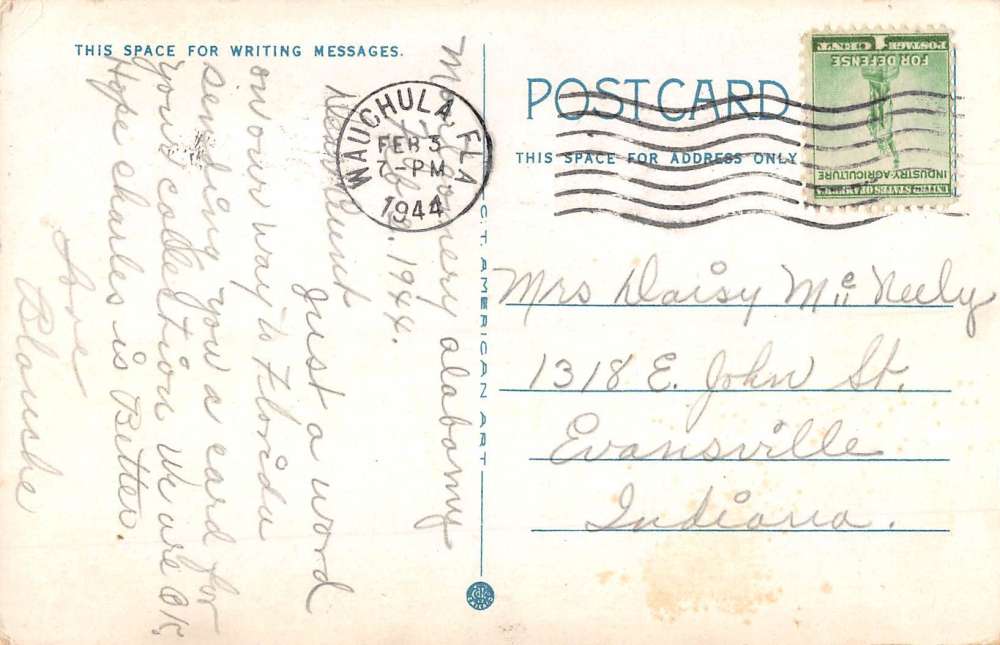 THIS SPACE FOR WRITING MESSAGES.
Montgomery alabamy
Feb. 1944.
Dear Aunt
Just a word
on our way to Florida
sending you a card for
your collection we are OK.
Hope charles is Better
Love
Blanche
WAUCHULA, FLA
FEB 3
7-PM
1944
C.T. AMERICAN ART
POST CARD
THIS SPACE FOR ADDRESS ONLY
UNITED STATES OF AMERICA
INDUSTRY-AGRICULTURE
FOR DEFENSE
1 CENT POSTAGE
Mrs Daisy Mc Neely
1318 E. John St.
Evansville
Indiana.